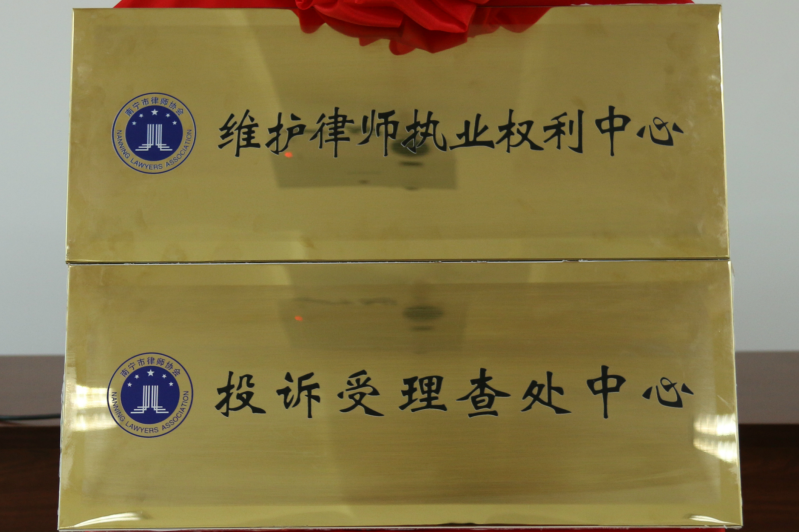 南宁市律师协会
NANNING LAWYERS ASSOCIATION
维护律师执业权利中心
南宁市律师协会
NANNING LAWYERS ASSOCIATION
投诉受理查处中心